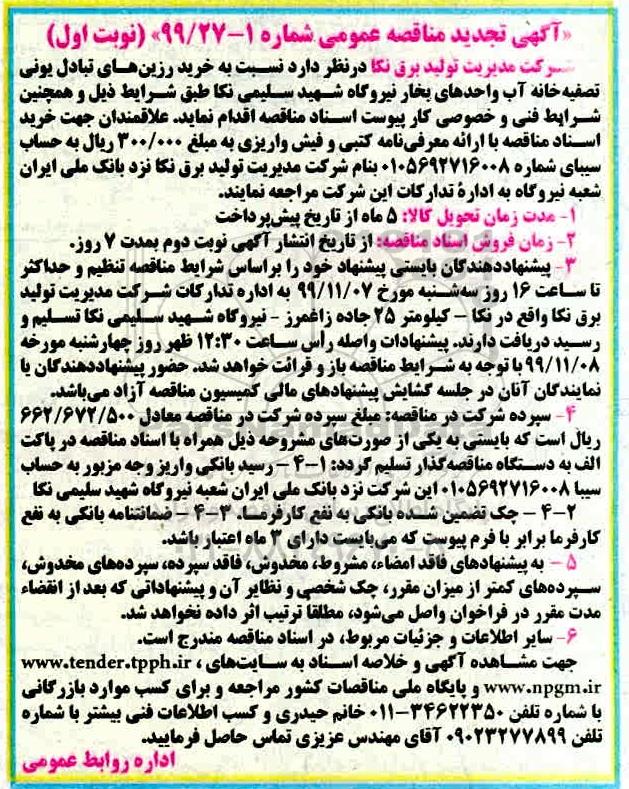 «آگهی تجدید مناقصه عمومی شماره ۱-۹۹/۲۷» (نوبت اول)
شرکت مدیریت تولید برق نکا درنظر دارد نسبت به خرید رزین‌های تبادل یونی
تصفیه‌خانه آب واحدهای بخار نیروگاه شهید سلیمی نکا طبق شرایط ذیل و همچنین
شرایط فنی و خصوصی کار پیوست اسناد مناقصه اقدام نماید. علاقمندان جهت خرید
اسناد مناقصه با ارائه معرفی‌نامه کتبی و فیش واریزی به مبلغ ۳۰۰/۰۰۰ ریال به حساب
سیبای شماره ۰۱۰۵۶۹۲۷۱۶۰۰۸ بنام شرکت مدیریت تولید برق نکا نزد بانک ملی ایران
شعبه نیروگاه به ادارۀ تدارکات این شرکت مراجعه نمایند.
۱- مدت زمان تحویل کالا: ۵ ماه از تاریخ پیش‌پرداخت
۲- زمان فروش اسناد مناقصه: از تاریخ انتشار آگهی نوبت دوم بمدت ۷ روز.
۳- پیشنهاددهندگان بایستی پیشنهاد خود را براساس شرایط مناقصه تنظیم و حداکثر
تا ساعت ۱۶ روز سه‌شنبه مورخ ۹۹/۱۱/۰۷ به اداره تدارکات شرکت مدیریت تولید
برق نکا واقع در نکا – کیلومتر ۲۵ جاده زاغمرز - نیروگاه شهید سلیمی نکا تسلیم و
رسید دریافت دارند. پیشنهادات واصله رأس ساعت ۱۲:۳۰ ظهر روز چهارشنبه مورخه
۹۹/۱۱/۰۸ با توجه به شرایط مناقصه باز و قرائت خواهد شد. حضور پیشنهاددهندگان یا
نمایندگان آنان در جلسه گشایش پیشنهادهای مالی کمیسیون مناقصه آزاد می‌باشد.
۴- سپرده شرکت در مناقصه: مبلغ سپرده شرکت در مناقصه معادل ۶۶۲/۶۷۲/۵۰۰
ریال است که بایستی به یکی از صورت‌های مشروحه ذیل همراه با اسناد مناقصه در پاکت
الف به دستگاه مناقصه‌گذار تسلیم گردد: ۱-۴ – رسید بانکی واریز وجه مزبور به حساب
سیبا ۰۱۰۵۶۹۲۷۱۶۰۰۸ این شرکت نزد بانک ملی ایران شعبه نیروگاه شهید سلیمی نکا
۲-۴ – چک تضمین شده بانکی به نفع کارفرما. ۳-۴ – ضمانتنامه بانکی به نفع
کارفرما برابر با فرم پیوست که می‌بایست دارای ۳ ماه اعتبار باشد.
۵ – به پیشنهادهای فاقد امضاء، مشروط، مخدوش، فاقد سپرده، سپرده‌های مخدوش،
سپرده‌های کمتر از میزان مقرر، چک شخصی و نظایر آن و پیشنهاداتی که بعد از انقضاء
مدت مقرر در فراخوان واصل می‌شود، مطلقا ترتیب اثر داده نخواهد شد.
۶- سایر اطلاعات و جزئیات مربوط، در اسناد مناقصه مندرج است.
جهت مشاهده آگهی و خلاصه اسناد به سایت‌های www.tender.tpph.ir ،
www.npgm.ir و پایگاه ملی مناقصات کشور مراجعه و برای کسب موارد بازرگانی
با شماره تلفن ۳۴۶۲۲۳۵۰-۰۱۱ خانم حیدری و کسب اطلاعات فنی بیشتر با شماره
تلفن ۰۹۰۲۳۲۷۷۸۹۹ آقای مهندس عزیزی تماس حاصل فرمایید.
اداره روابط عمومی